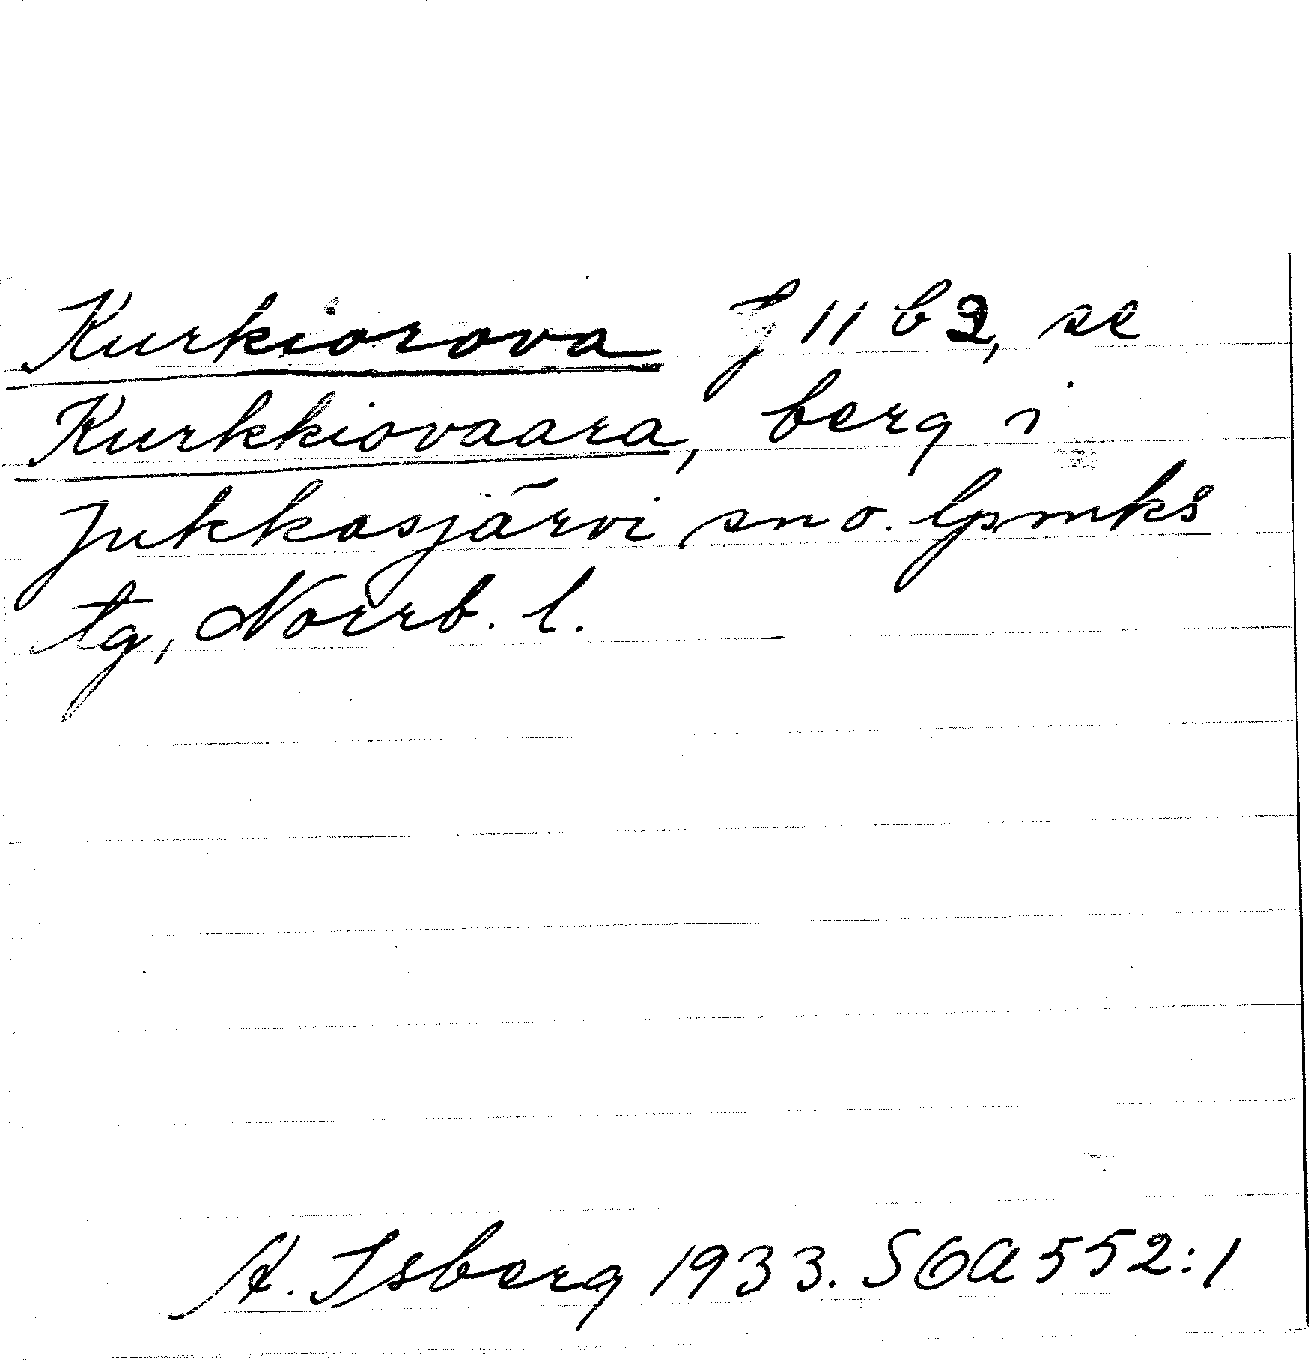 Kurkiorova J 11 b 2, se
Kurkkiovaara, berg i
Jukkasjärvi sn o. lpmks
tg, Norrb. l.
A. Isberg 1933. SOA 552:1